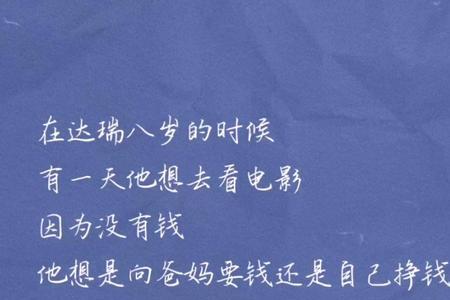 在达瑞八岁的时候
有一天他想去看电影
因为没有钱
他想是向爸妈要钱还是自己挣钱